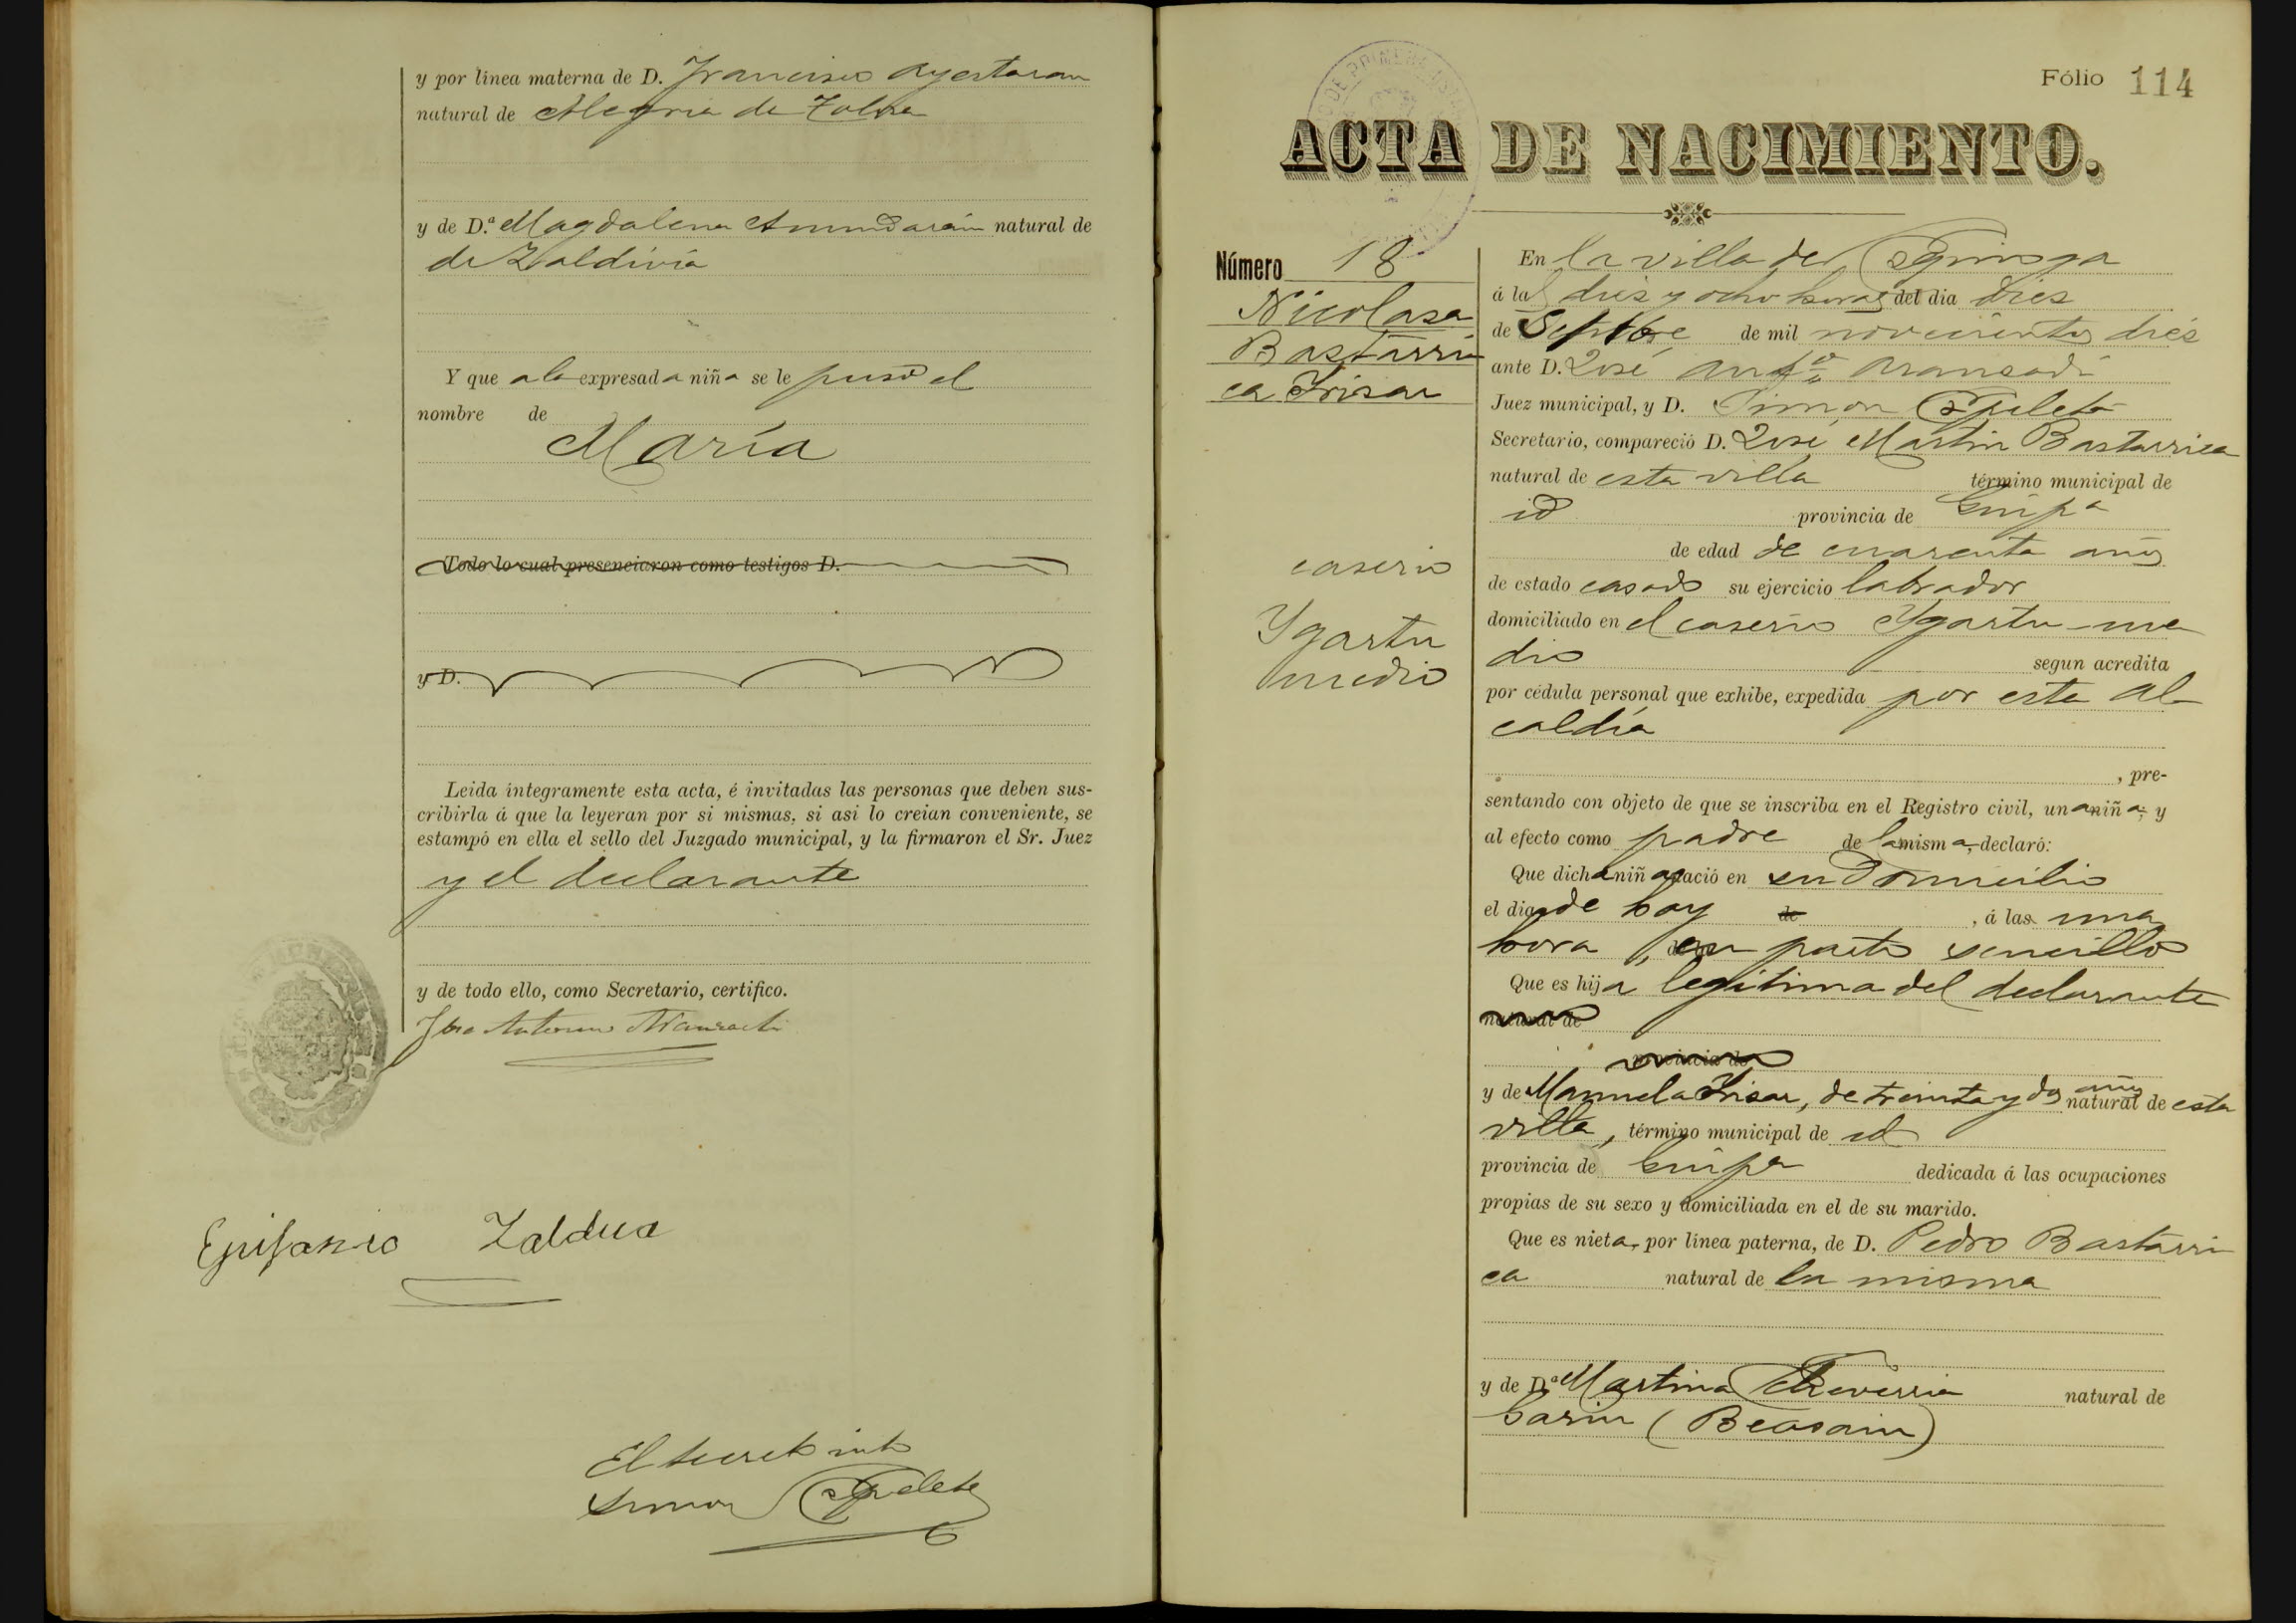 y por línea materna de D. Francisco Ayestaran
natural de Alegria de Tolosa
y de D.ª Magdalena Amundarain natural de
de Zaldivia
Y que a la expresada niña se le puso el
nombre de
María
Todo lo cual presenciaron como testigos D.
y D.
Leida integramente esta acta, é invitadas las personas que deben sus-
cribirla á que la leyeran por si mismas, si asi lo creian conveniente, se
estampó en ella el sello del Juzgado municipal, y la firmaron el Sr. Juez
y el declarante
y de todo ello, como Secretario, certifico.
José Antonio Aransadi
Epifanio Zaldua
El Secretario
Simon
Fólio 114
ACTA DE NACIMIENTO.
Número 18
Nicolasa
Bastarri
ca Irisar
caserio
Ygartu
medio
En la villa de
á las dies y ocho horas del dia dies
de Septbre de mil novecientos dies
ante D. José Antº Aransadi
Juez municipal, y D. Simon
Secretario, compareció D. José Martin Bastarrica
natural de esta villa término municipal de
id provincia de Guipª
de edad de cuarenta años
de estado casado su ejercicio labrador
domiciliado en el caserio Ygartu-me
dio segun acredita
por cédula personal que exhibe, expedida por esta al
caldía
, pre-
sentando con objeto de que se inscriba en el Registro civil, una niña; y
al efecto como padre de la misma, declaró:
Que dicha niña nació en su domicilio
el dia de hoy de , á las una
hora, en parto sencillo
Que es hija legitima del declarante
natural de
provincia de
y de Manuela Irisar, de treinta y dos años natural de esta
villa, término municipal de id
provincia de Guipª dedicada á las ocupaciones
propias de su sexo y domiciliada en el de su marido.
Que es nieta, por línea paterna, de D. Pedro Bastarri
ca natural de la misma
y de D.ª Martina Echeverria natural de
Garin (Beasain)